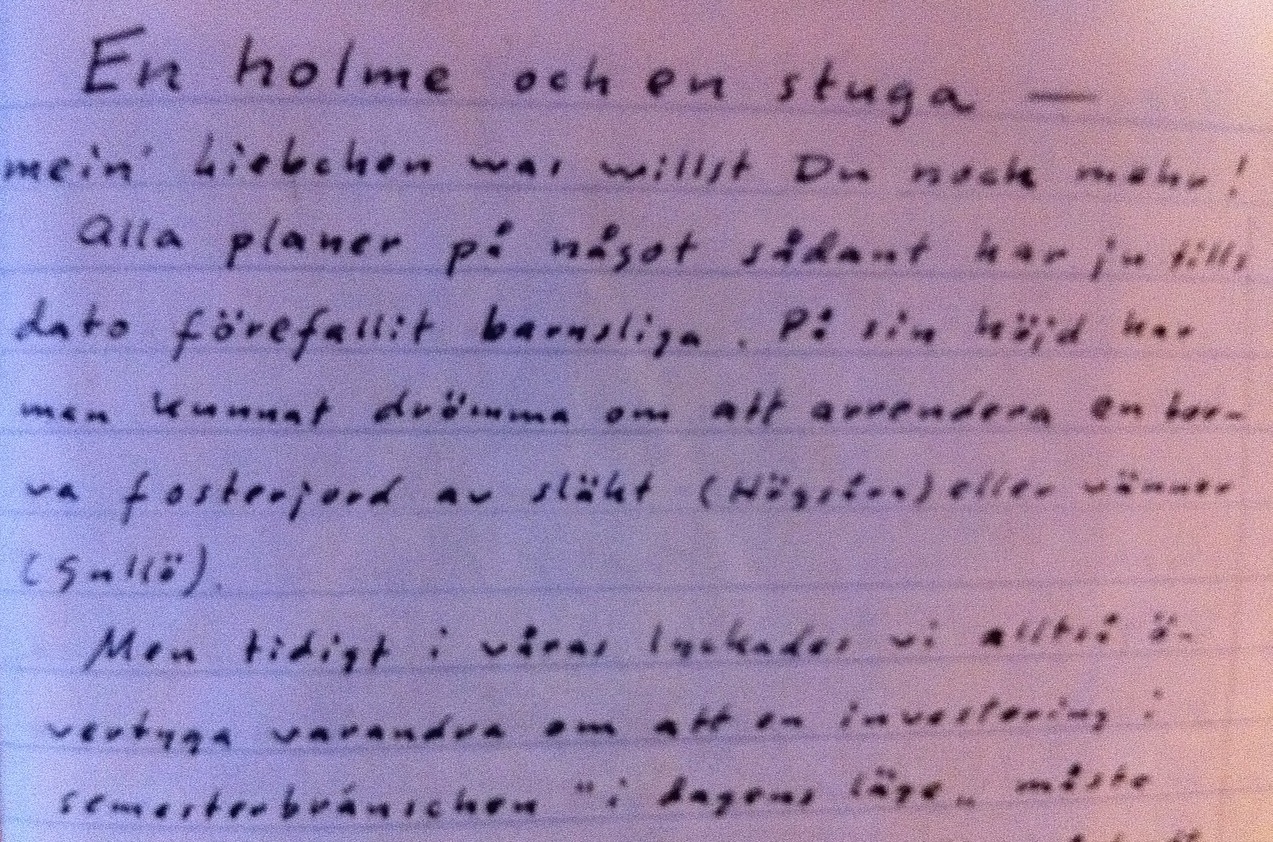 En holme och en stuga —
mein' Liebchen was willst Du noch mehr!
Alla planer på något sådant har ju tills
dato förefallit barnsliga. På sin höjd har
man kunnat drömma om att arrendera en tor-
va fosterjord av släkt (Högsåra) eller vänner
(Gullö).
Men tidigt i våras lyckades vi alltså ö-
vertyga varandra om att en investering i
semesterbränschen "i dagens läge" måste